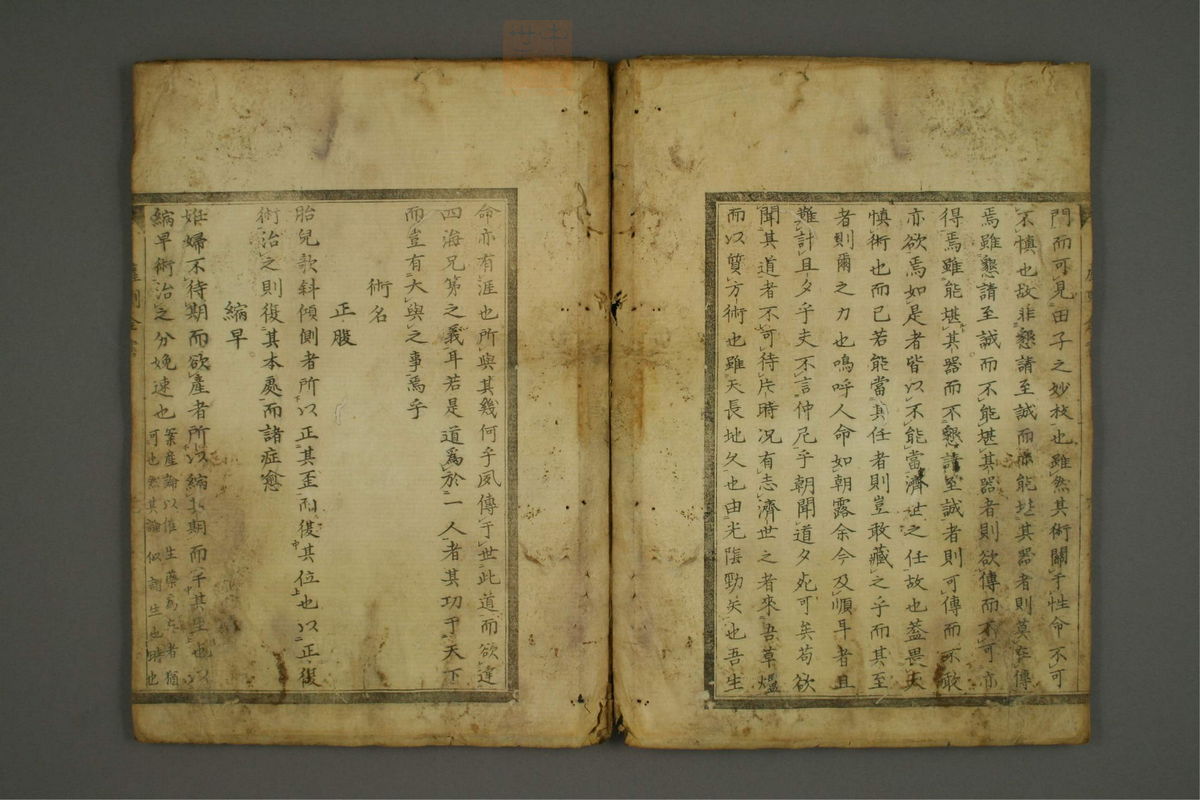 門而可見田子之妙技也雖然其術關于性命不可
不慎也故非懇請至誠而亦能堪其器者則莫傳
焉雖懇請至誠而不能堪其器者則欲傳而不可亦
得焉雖能堪其器而不懇請至誠者則可傳而不敢
亦欲焉如是者皆以不能當濟世之任故也蓋畏天
慎術也而已若能當其任者則豈敢藏之乎而其至
者則爾之力也鳴呼人命如朝露余今及順耳者且
難計且夕乎夫不言仲尼乎朝聞道夕死可矣苟欲
聞其道者不可待片時況有志濟世之者來吾草廬
而以質方術也雖天長地久也由光陰勁矢也吾生
命亦有涯也所與其幾何乎夙傳于世此道而欲達
四海兄第之義耳若是道爲於一人者其功于天下
而豈有大與之事焉乎
術名
正股
胎兒歌斜傾側者所以正其歪而復其位也以正復
術治之則復其本處而諸症愈
縮早
妊婦不待期而欲產者所以縮其期而于其生也以
縮早術治之分娩速也
案產論以催生藥爲者猶
可也然其論似生也時也